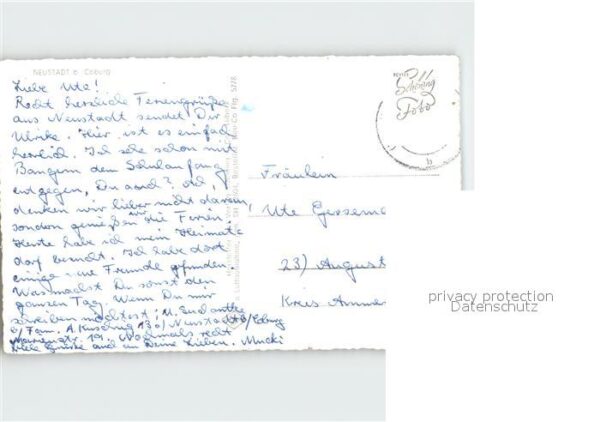 NEUSTADT b. Coburg
Liebe Ute!
Recht herzliche Feriengrüße
aus Neustadt sendet Dir
Ulrike. Hier ist es einfach
herrlich. Ich sehe schon mit
Bangem dem Schulanfang
entgegen, Du auch? Ach,
denken wir lieber nicht daran,
sondern genießen wir die Ferien.
Heute habe ich mein Heimat-
dorf besucht. Ich habe dort
einige neue Freunde gefunden.
Was machst Du sonst den
ganzen Tag. Wenn Du mir
schreiben möchtest:
b/Fam. A. 13b/Neustadt b/Coburg
19. Nochmals recht
viele Grüße auch an Deine Lieben. Mucki
Schöning
Foto
Fräulein
Ute
23) August
Kreis
privacy protection
Datenschutz